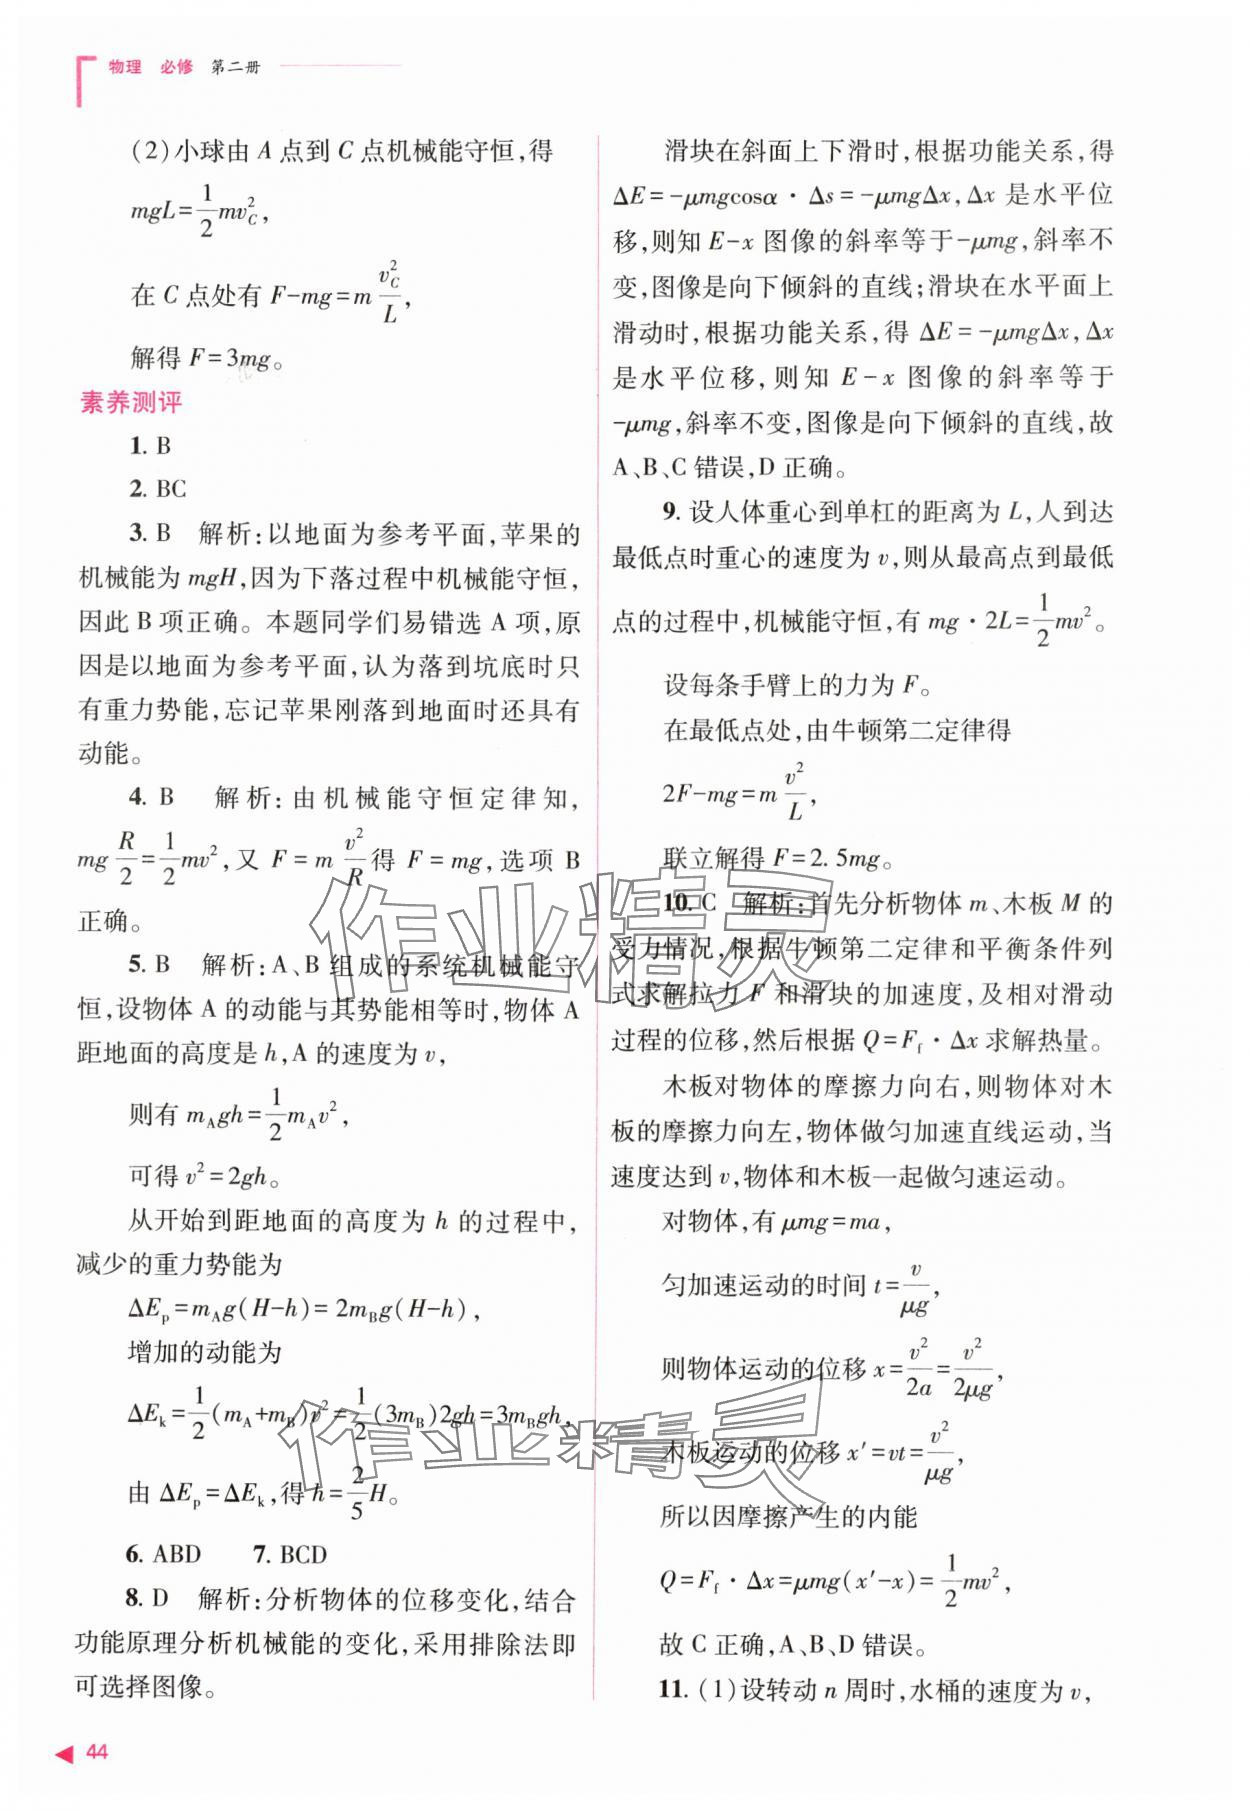 物理 必修 第二册
(2)小球由 A 点到 C 点机械能守恒,得
mgL=\frac{1}{2}mv_C^2,
在 C 点处有 F-mg=m\frac{v_C^2}{L},
解得 F=3mg。
素养测评
1. B
2. BC
3. B 解析:以地面为参考平面,苹果的
机械能为 mgH,因为下落过程中机械能守恒,
因此 B 项正确。本题同学们易错选 A 项,原
因是以地面为参考平面,认为落到坑底时只
有重力势能,忘记苹果刚落到地面时还具有
动能。
4. B 解析:由机械能守恒定律知,
mg\frac{R}{2}=\frac{1}{2}mv^2,又 F=m\frac{v^2}{R}得 F=mg,选项 B
正确。
5. B 解析:A、B 组成的系统机械能守
恒,设物体 A 的动能与其势能相等时,物体 A
距地面的高度是 h,A 的速度为 v,
则有 m_Agh=\frac{1}{2}m_Av^2,
可得 v^2=2gh。
从开始到距地面的高度为 h 的过程中,
减少的重力势能为
ΔE_p=m_Ag(H-h)=2m_Bg(H-h),
增加的动能为
ΔE_k=\frac{1}{2}(m_A+m_B)v^2=\frac{1}{2}(3m_B)2gh=3m_Bgh,
由 ΔE_p=ΔE_k,得 h=\frac{2}{5}H。
6. ABD 7. BCD
8. D 解析:分析物体的位移变化,结合
功能原理分析机械能的变化,采用排除法即
可选择图像。
滑块在斜面上下滑时,根据功能关系,得
ΔE=-μmgcosα·Δs=-μmgΔx,Δx 是水平位
移,则知 E-x 图像的斜率等于-μmg,斜率不
变,图像是向下倾斜的直线;滑块在水平面上
滑动时,根据功能关系,得 ΔE=-μmgΔx,Δx
是水平位移,则知 E-x 图像的斜率等于
-μmg,斜率不变,图像是向下倾斜的直线,故
A、B、C 错误,D 正确。
9. 设人体重心到单杠的距离为 L,人到达
最低点时重心的速度为 v,则从最高点到最低
点的过程中,机械能守恒,有 mg·2L=\frac{1}{2}mv^2。
设每条手臂上的力为 F。
在最低点处,由牛顿第二定律得
2F-mg=m\frac{v^2}{L},
联立解得 F=2.5mg。
10. C 解析:首先分析物体 m、木板 M 的
受力情况,根据牛顿第二定律和平衡条件列
式求解拉力 F 和滑块的加速度,及相对滑动
过程的位移,然后根据 Q=F_f·Δx 求解热量。
木板对物体的摩擦力向右,则物体对木
板的摩擦力向左,物体做匀加速直线运动,当
速度达到 v,物体和木板一起做匀速运动。
对物体,有 μmg=ma,
匀加速运动的时间 t=\frac{v}{μg},
则物体运动的位移 x=\frac{v^2}{2a}=\frac{v^2}{2μg},
木板运动的位移 x′=vt=\frac{v^2}{μg},
所以因摩擦产生的内能
Q=F_f·Δx=μmg(x′-x)=\frac{1}{2}mv^2,
故 C 正确,A、B、D 错误。
11. (1)设转动 n 周时,水桶的速度为 v,
44
作业精灵
作业精灵